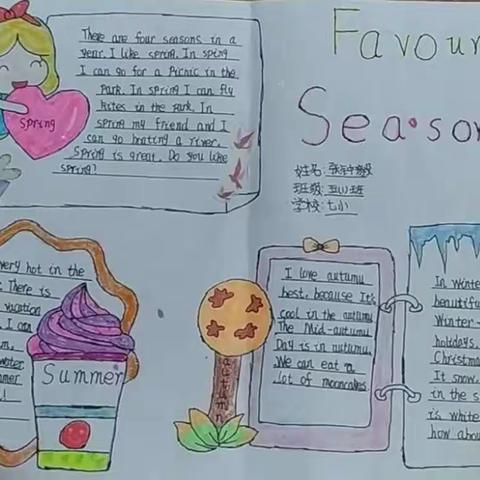 There are four seasons in a
year. I like spring. In spring
I can go for a Picnic in the
Park. In spring I can fly
kites in the park. In
spring my friend and I
can go boating a river.
Spring is great. Do you like
spring?
spring
Favour
Season
姓名:
班级:五(1)班
学校:七小
very hot in the
There is
vacation
I can
water
Summer
autumn
I love autumn
best, because It's
cool in the autumn
The Mid-autumn
Day is in autumn.
We can eat a
lot of mooncakes.
In winte
beautiful
Winter
holidays.
Christma
It snow.
in the s
is white
how abou